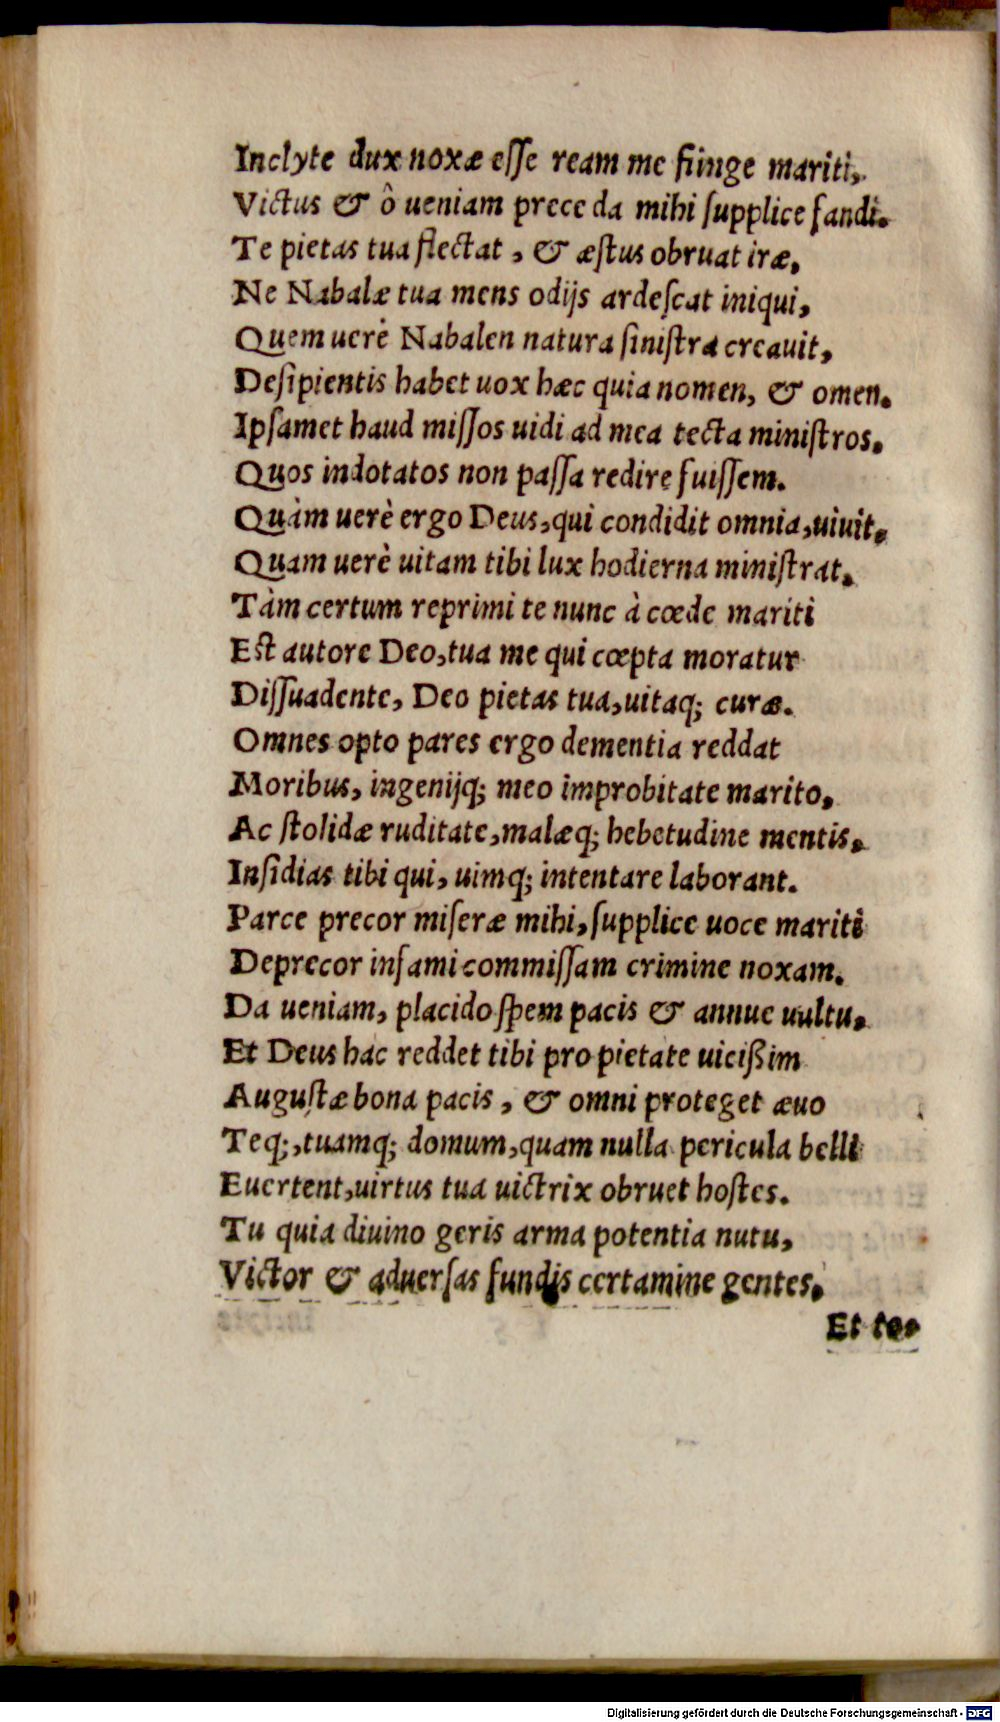 Inclyte dux noxæ esse ream me finge mariti,
Victus & ô ueniam prece da mihi supplice fandi.
Te pietas tua flectat, & æstus obruat iræ,
Ne Nabalæ tua mens odijs ardescat iniqui,
Quem uerè Nabalen natura sinistra creauit,
Desipientis habet uox hæc quia nomen, & omen.
Ipsamet haud missos uidi ad mea tecta ministros.
Quos indotatos non passa redire fuissem.
Quàm uerè ergo Deus, qui condidit omnia, uiuit,
Quam uerè uitam tibi lux hodierna ministrat.
Tàm certum reprimi te nunc à cœde mariti
Est autore Deo, tua me qui cœpta moratur
Dissuadente, Deo pietas tua, uitaq; curæ.
Omnes opto pares ergo dementia reddat
Moribus, ingenijq; meo improbitate marito,
Ac stolidæ ruditate, malæq; hebetudine mentis,
Insidias tibi qui, uimq; intentare laborant.
Parce precor miseræ mihi, supplice uoce mariti
Deprecor infami commissam crimine noxam.
Da ueniam, placido spem pacis & annue uultu,
Et Deus hac reddet tibi pro pietate uicißim
Augustæ bona pacis, & omni proteget æuo
Teq;, tuamq; domum, quam nulla pericula belli
Euertent, uirtus tua uictrix obruet hostes.
Tu quia diuino geris arma potentia nutu,
Victor & aduersas fundis certamine gentes.
Et te,
Digitalisierung gefördert durch die Deutsche Forschungsgemeinschaft - DFG